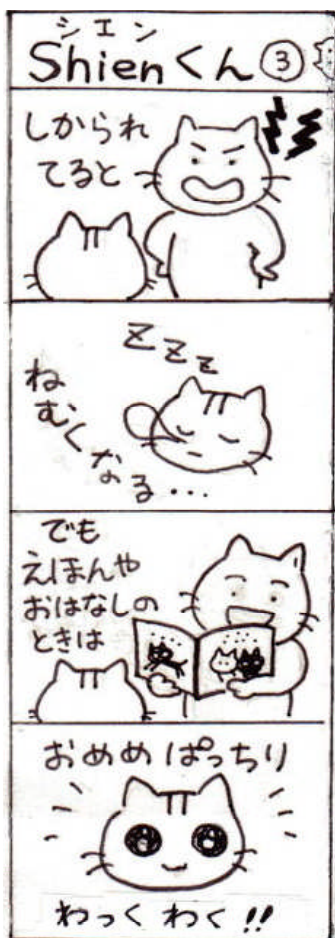 シエン
Shienくん③
しかられ
てると
zzz
ねむくなる...
でも
えほんや
おはなしの
ときは
おめめ ぱっちり
わっく わく!!